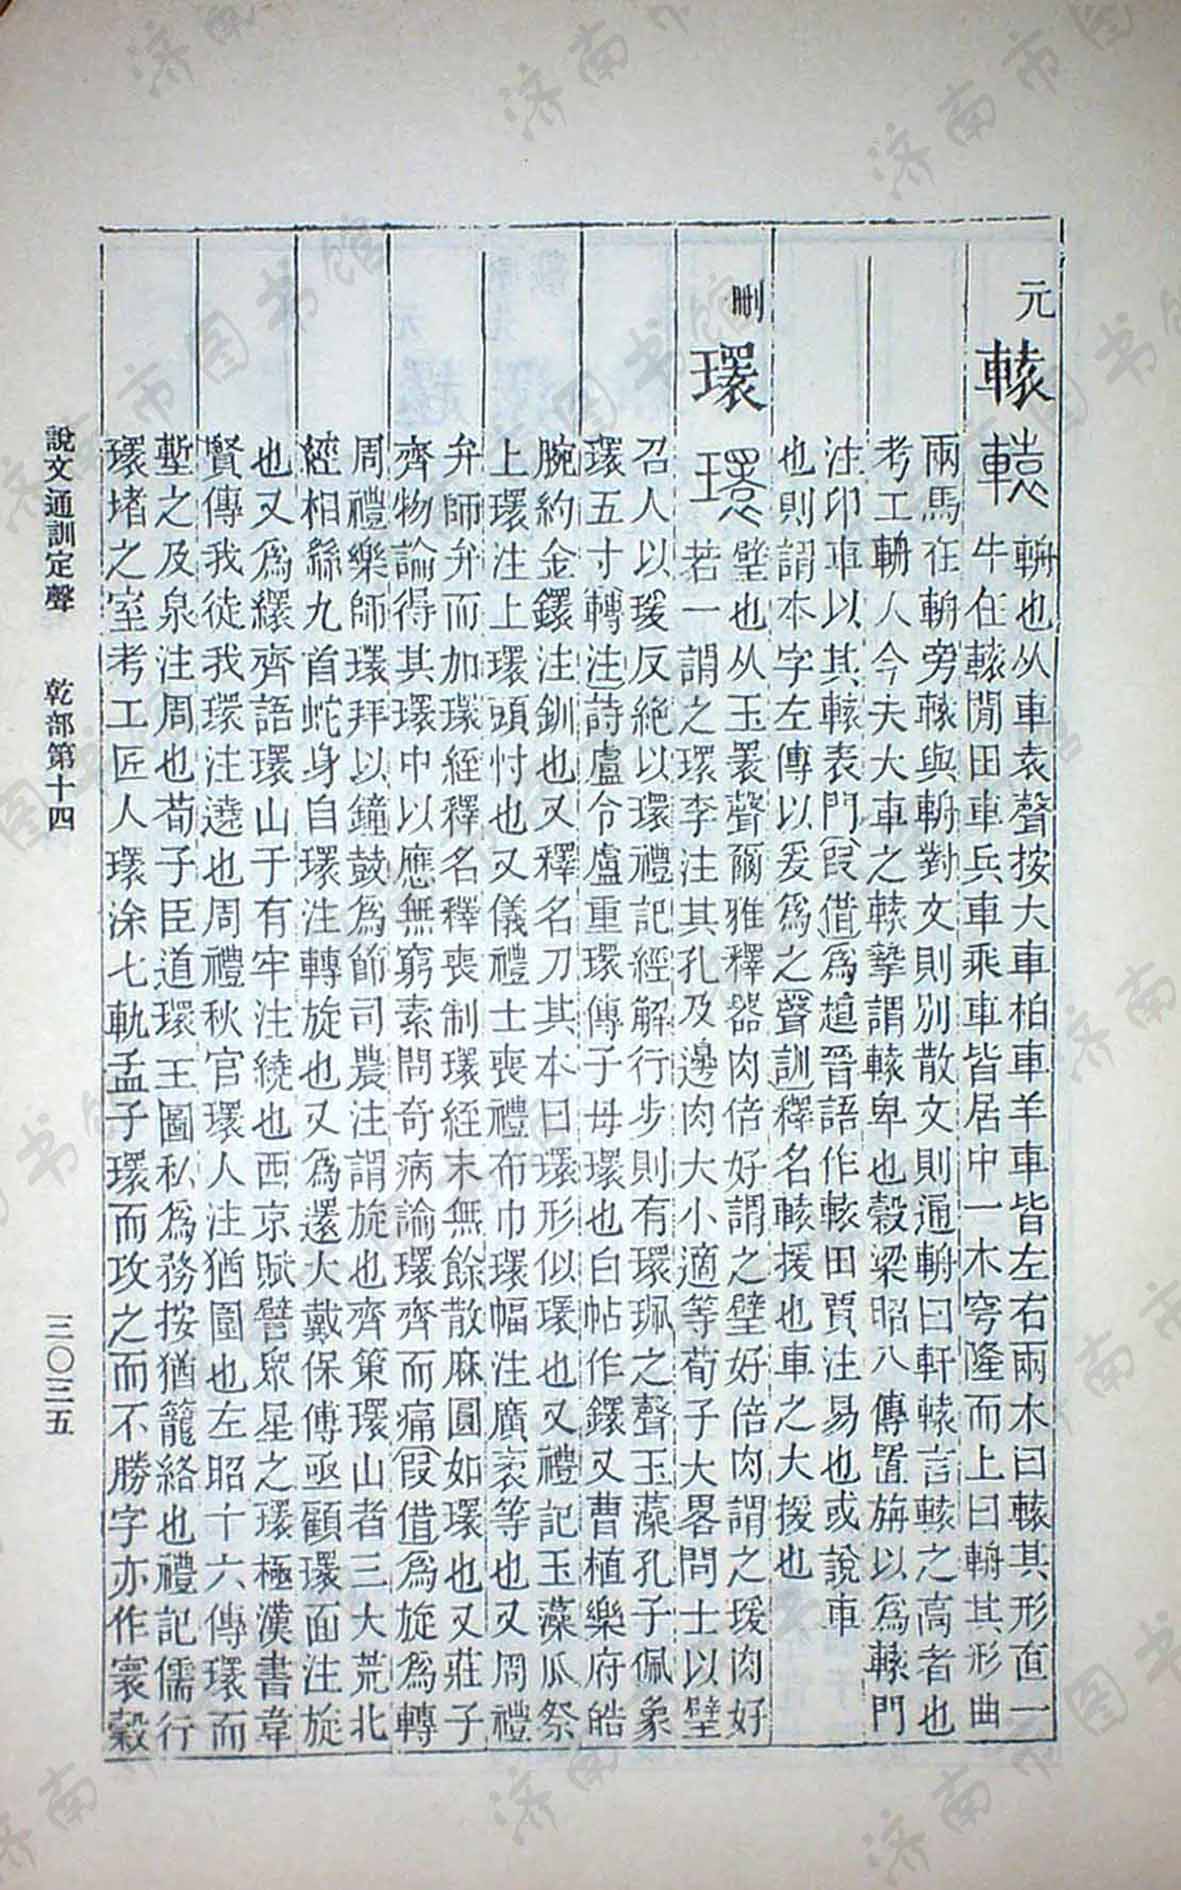 元
轅
輈也从車袁聲按大車柏車羊車皆左右兩木曰轅其形直一
牛在轅閒田車兵車乘車皆居中一木穹隆而上曰輈其形曲
兩馬在輈旁轅與輈對文則別散文則通輈曰軒轅言轅之高者也
考工輈人今夫大車之轅摯謂轅卑也穀梁昭八傳置旃以為轅門
注卬車以其轅表門叚借爲趄晉語作轅田賈注易也或說車
也則謂本字左傳以爰爲之聲訓釋名轅援也車之大援也
刪
環
璧也从玉睘聲爾雅釋器肉倍好謂之璧好倍肉謂之瑗肉好
若一謂之環李注其孔及邊肉大小適等荀子大畧問士以璧
召人以瑗反絶以環禮記經解行步則有環珮之聲玉藻孔子佩象
環五寸轉注詩盧令盧重環傳子母環也白帖作鐶又曹植樂府皓
腕約金鐶注釧也又釋名刀其本曰環形似環也又禮記玉藻瓜祭
上環注上環頭忖也又儀禮士喪禮布巾環幅注廣袤等也又周禮
弁師弁而加環絰釋名釋喪制環絰末無餘散麻圓如環也又莊子
齊物論得其環中以應無窮素問奇病論環齊而痛叚借爲旋爲轉
周禮樂師環拜以鐘鼓爲節司農注謂旋也齊策環山者三大荒北
經相繇九首蛇身自環注轉旋也又爲還大戴保傅亟顧環面注旋
也又爲繯齊語環山于有牢注繞也西京賦譬眾星之環極漢書韋
賢傳我徒我環注遶也周禮秋官環人注猶圍也左昭十六傳環而
塹之及泉注周也荀子臣道環王圖私爲務按猶籠絡也禮記儒行
環堵之室考工匠人環涂七軌孟子環而攻之而不勝字亦作寰穀
說文通訓定聲 乾部第十四 三〇三五